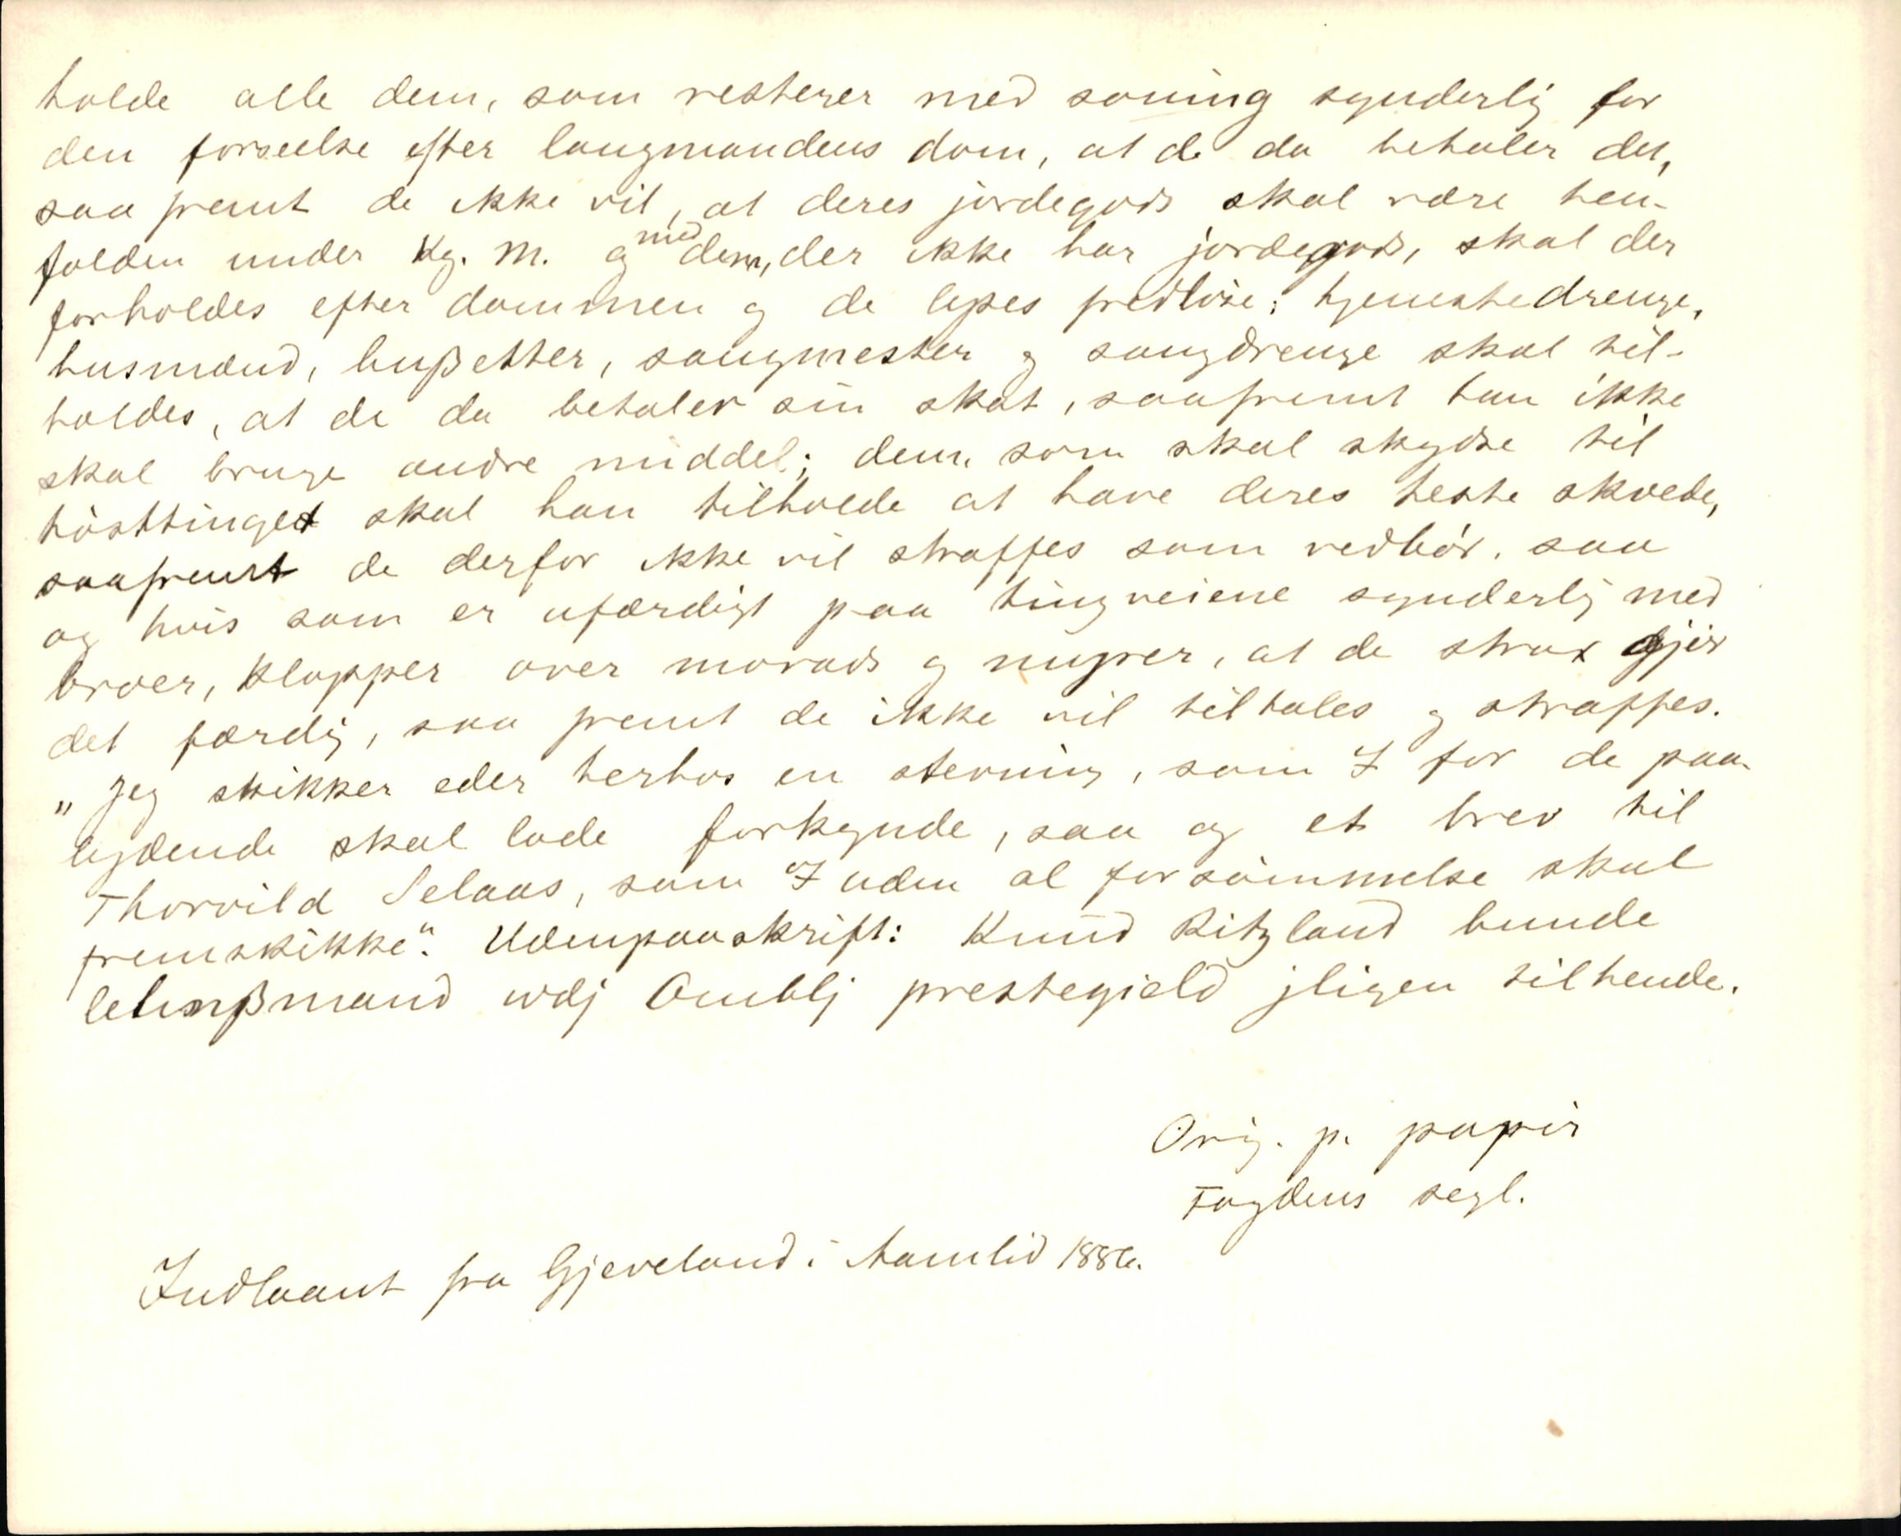 holde alle dem, som resterer med soning synderlig for
den forseelse efter laugmandens dom, at de da betaler det,
saa fremt de ikke vil, at deres jordegods skal være hen-
falden under Kg. M. og med dem, der ikke har jordegods, skal der
forholdes efter dommen og de lyses fredløse; tjenestedrenge,
husmænd, bußetter, saugmester og saugdrenge skal til-
holdes, at de da betaler sin skat, saafremt han ikke
skal bruge andre middel; dem, som skal skydse til
hösttinget skal han tilholde at have deres heste skoede,
saafremt de derfor ikke vil straffes som vedbör. saa
og hvis som er ufærdigt paa tingveiene synderlig med
broer, klopper over morads og myrer, at de strax gjör
det færdig, saa fremt de ikke vil tiltales og straffes.
"Jeg skikker eder herhos en stevning, som I for de paa-
lydende skal lade forkynde, saa og et brev til
Thorvild Selaas, som I uden al forsömmelse skal
fremskikke". Udenpaaskrift: Knud Ritzland bunde
lehnßmand wdj Omblj prestegield jligen tilhende.
Orig. p. papir
Fogdens segl.
Indlaant fra Gjeveland i Aamlid 1886.